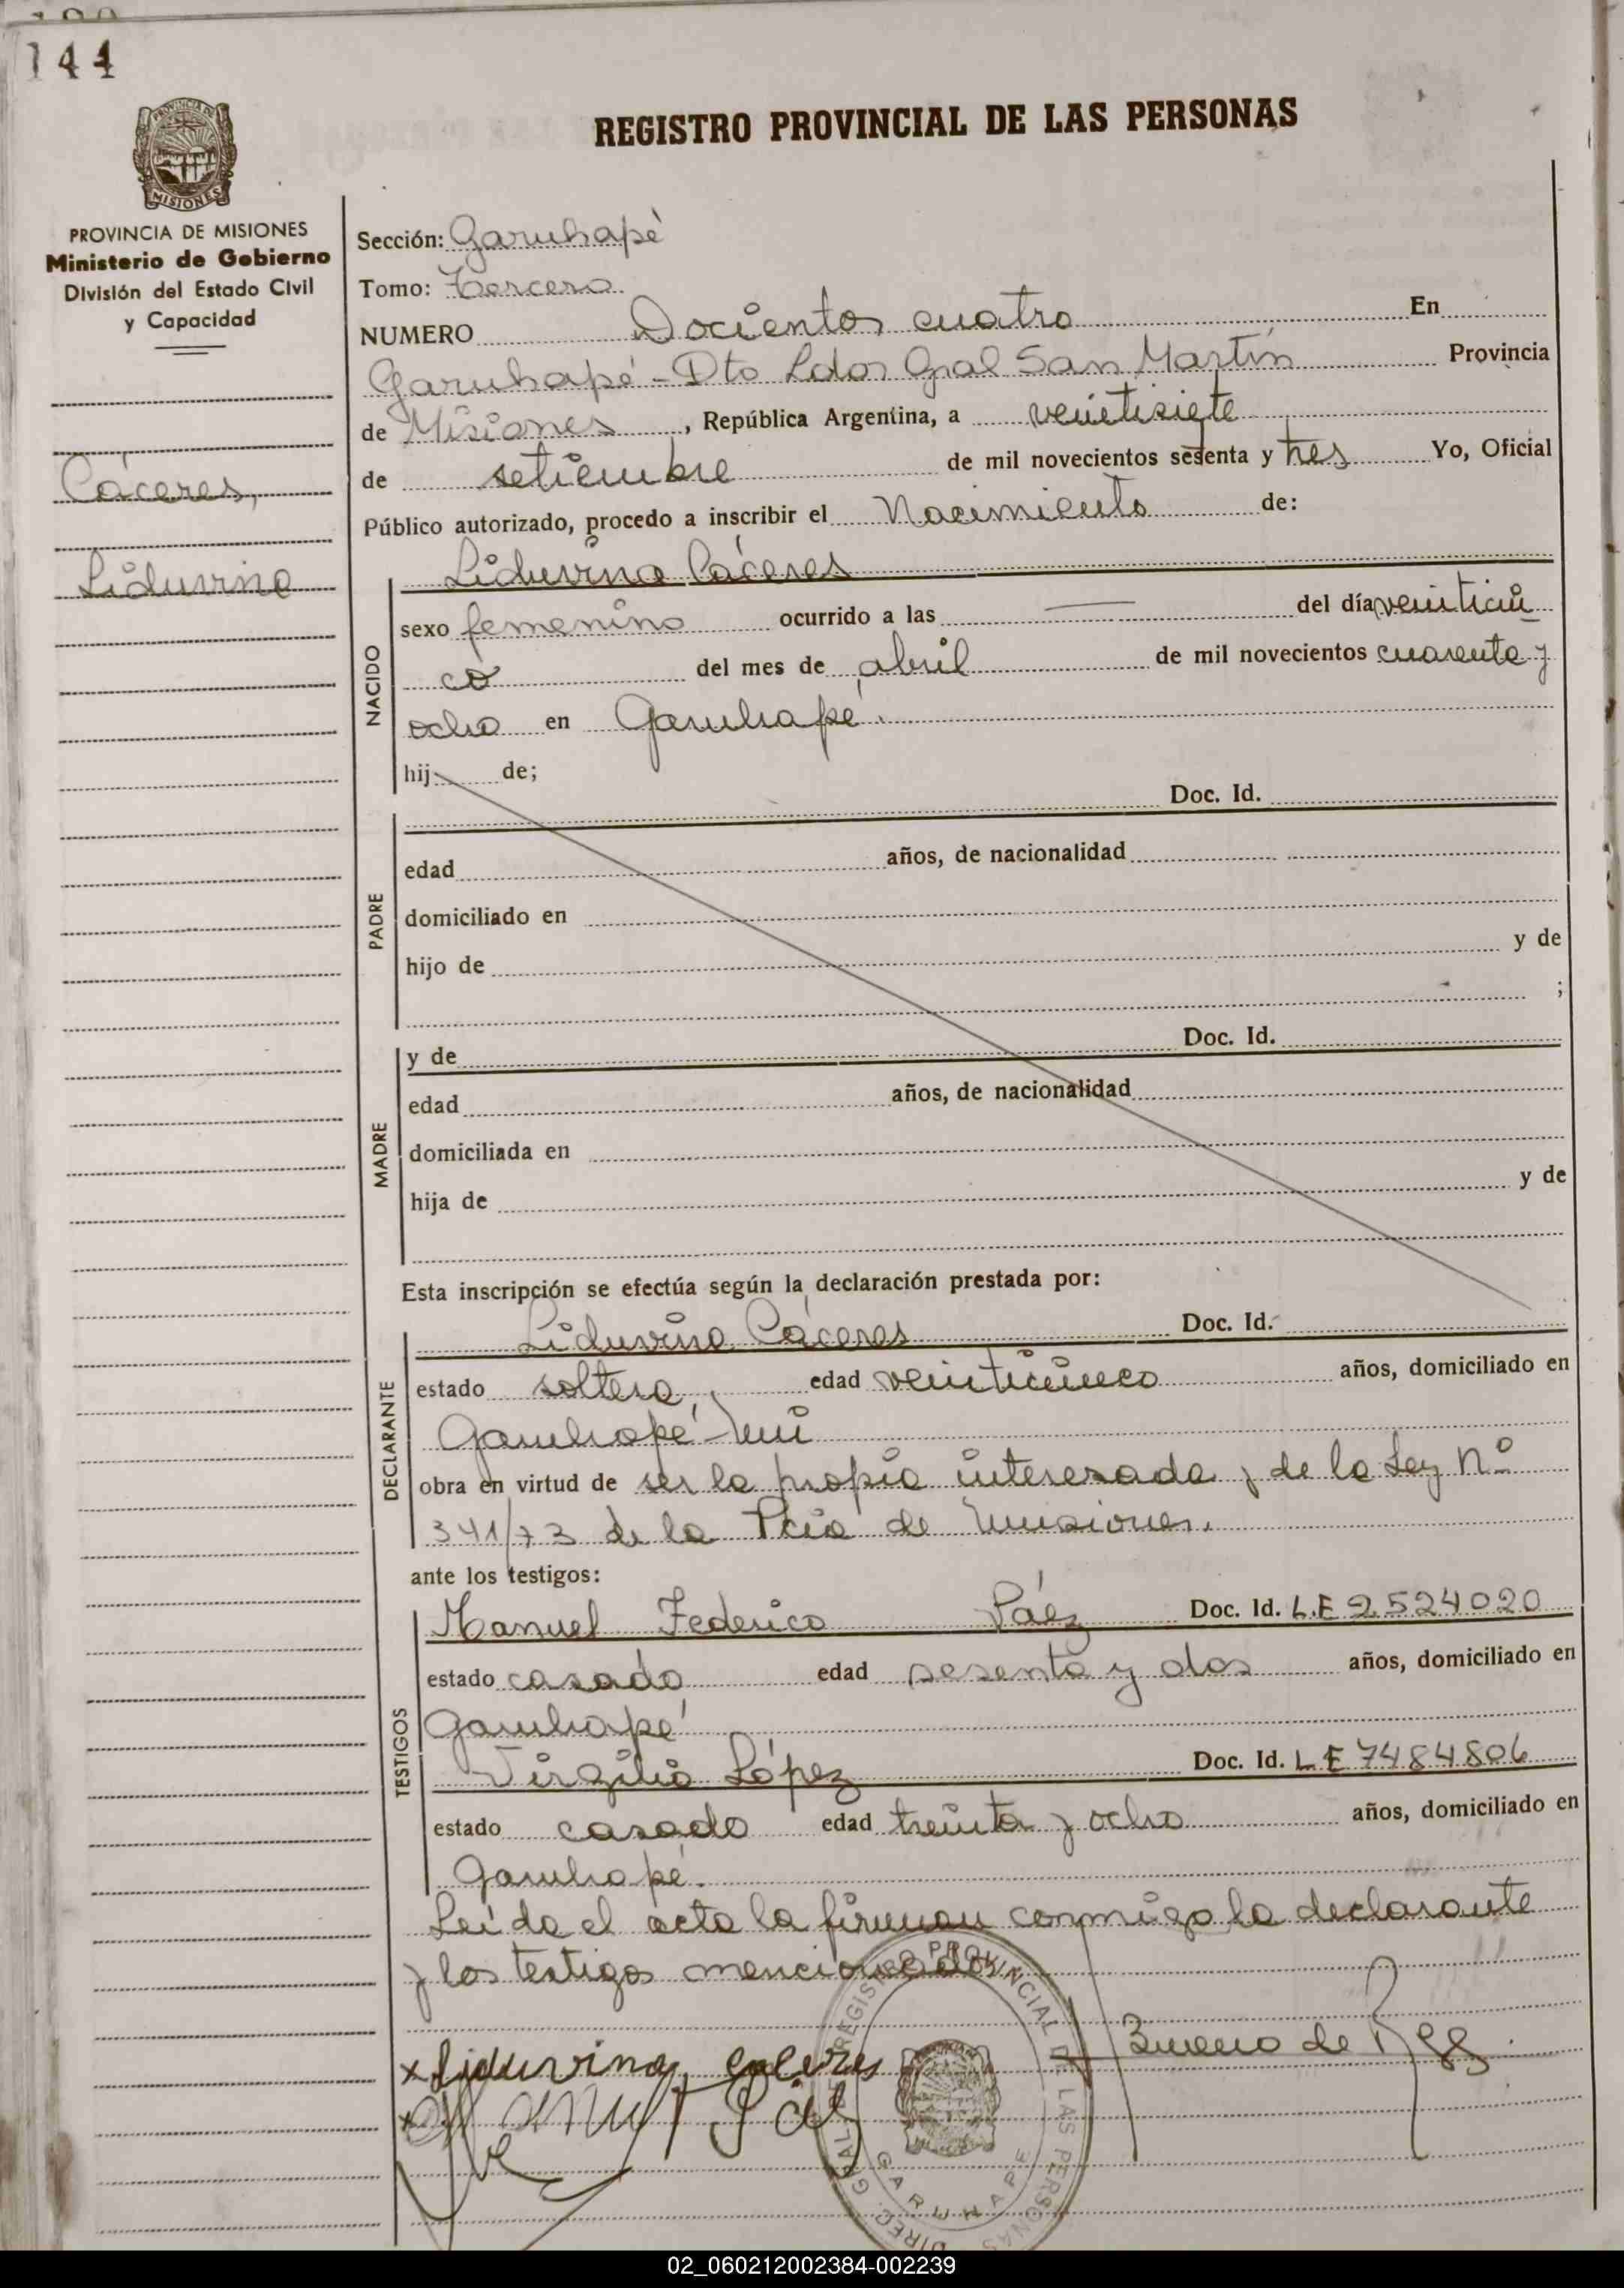 144
REGISTRO PROVINCIAL DE LAS PERSONAS
PROVINCIA DE MISIONES
Ministerio de Gobierno
División del Estado Civil
y Capacidad
Cáceres,
Liduvina
Sección: Garuhapé
Tomo: Tercero
NUMERO Docientos cuatro En
Garuhapé - Dto Ldor Gral San Martín Provincia
de Misiones, República Argentina, a veintisiete
de setiembre de mil novecientos setenta y tres Yo, Oficial
Público autorizado, procedo a inscribir el Nacimiento de:
NACIDO
Liduvina Cáceres
sexo femenino ocurrido a las — del día veinticin
co del mes de abril de mil novecientos cuarenta y
ocho en Garuhapé.
hij de;
PADRE
Doc. Id.
edad años, de nacionalidad
domiciliado en
hijo de y de
;
MADRE
y de Doc. Id.
edad años, de nacionalidad
domiciliada en
hija de y de
Esta inscripción se efectúa según la declaración prestada por:
DECLARANTE
Liduvina Cáceres Doc. Id.
estado soltera, edad veinticinco años, domiciliado en
Garuhapé-Miní
obra en virtud de ser la propia interesada y de la Ley Nº
341/73 de la Pcia de Misiones.
ante los testigos:
TESTIGOS
Manuel Federico Páez Doc. Id. L.E 2524020
estado casado edad sesenta y dos años, domiciliado en
Garuhapé
Virgilio López Doc. Id. L E 7484806
estado casado edad treinta y ocho años, domiciliado en
Garuhapé.
Leída el acta la firman conmigo la declarante
y los testigos mencionados
x Liduvina caceres
REGISTRO PROVINCIAL DE LAS PERSONAS
GARUHAPE
02_060212002384-002239